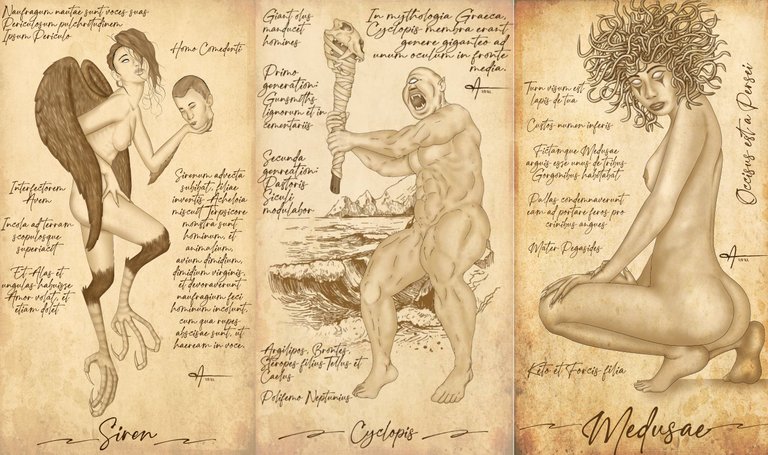 Naufragum nautae sunt voces suas
Periculosum pulchritudinem
Ipsum Periculo
Homo Comedenti
Interfectorem
Avem
Incola ad terram
scopulosque
superiacit
Et Alas et
ungulas habuisse
Amor volat, et
etiam dolet
Sirenum advecta
subibat, filiae
inventis Acheloia
miscuit Terpsicore
monstra sunt
hominum, et
animalium,
avium dimidium,
dimidium virginis,
et devoraverunt
naufragium feci
hominum incolunt,
cum qua rupes
abscisae sunt, ut
haeream in voce.
Siren
Giant olus
manducet
homines
In mythologia Graeca,
Cyclopis membra erant
genere giganteo ad
unum oculum in fronte
media.
Primo
generation:
Gunsmiths
lignorum et in
cementariis
Secunda
genreation:
Pastoris
Siculi
modulabor
Argilipos, Brontes,
Steropes filius Tellus et
Caelus
Polifemo Neptunius
Cyclopis
Turn visum est
lapis de tua
Custos numen inferis
Fictamque Medusae
arguis esse unus de tribus
Gorgonibus habitabat
Pallas condemnaverunt
eam ad portare feros pro
crinibus angues
Mater Pegasides
Occisus est a Persei
Keto et Forcis filia
Medusae